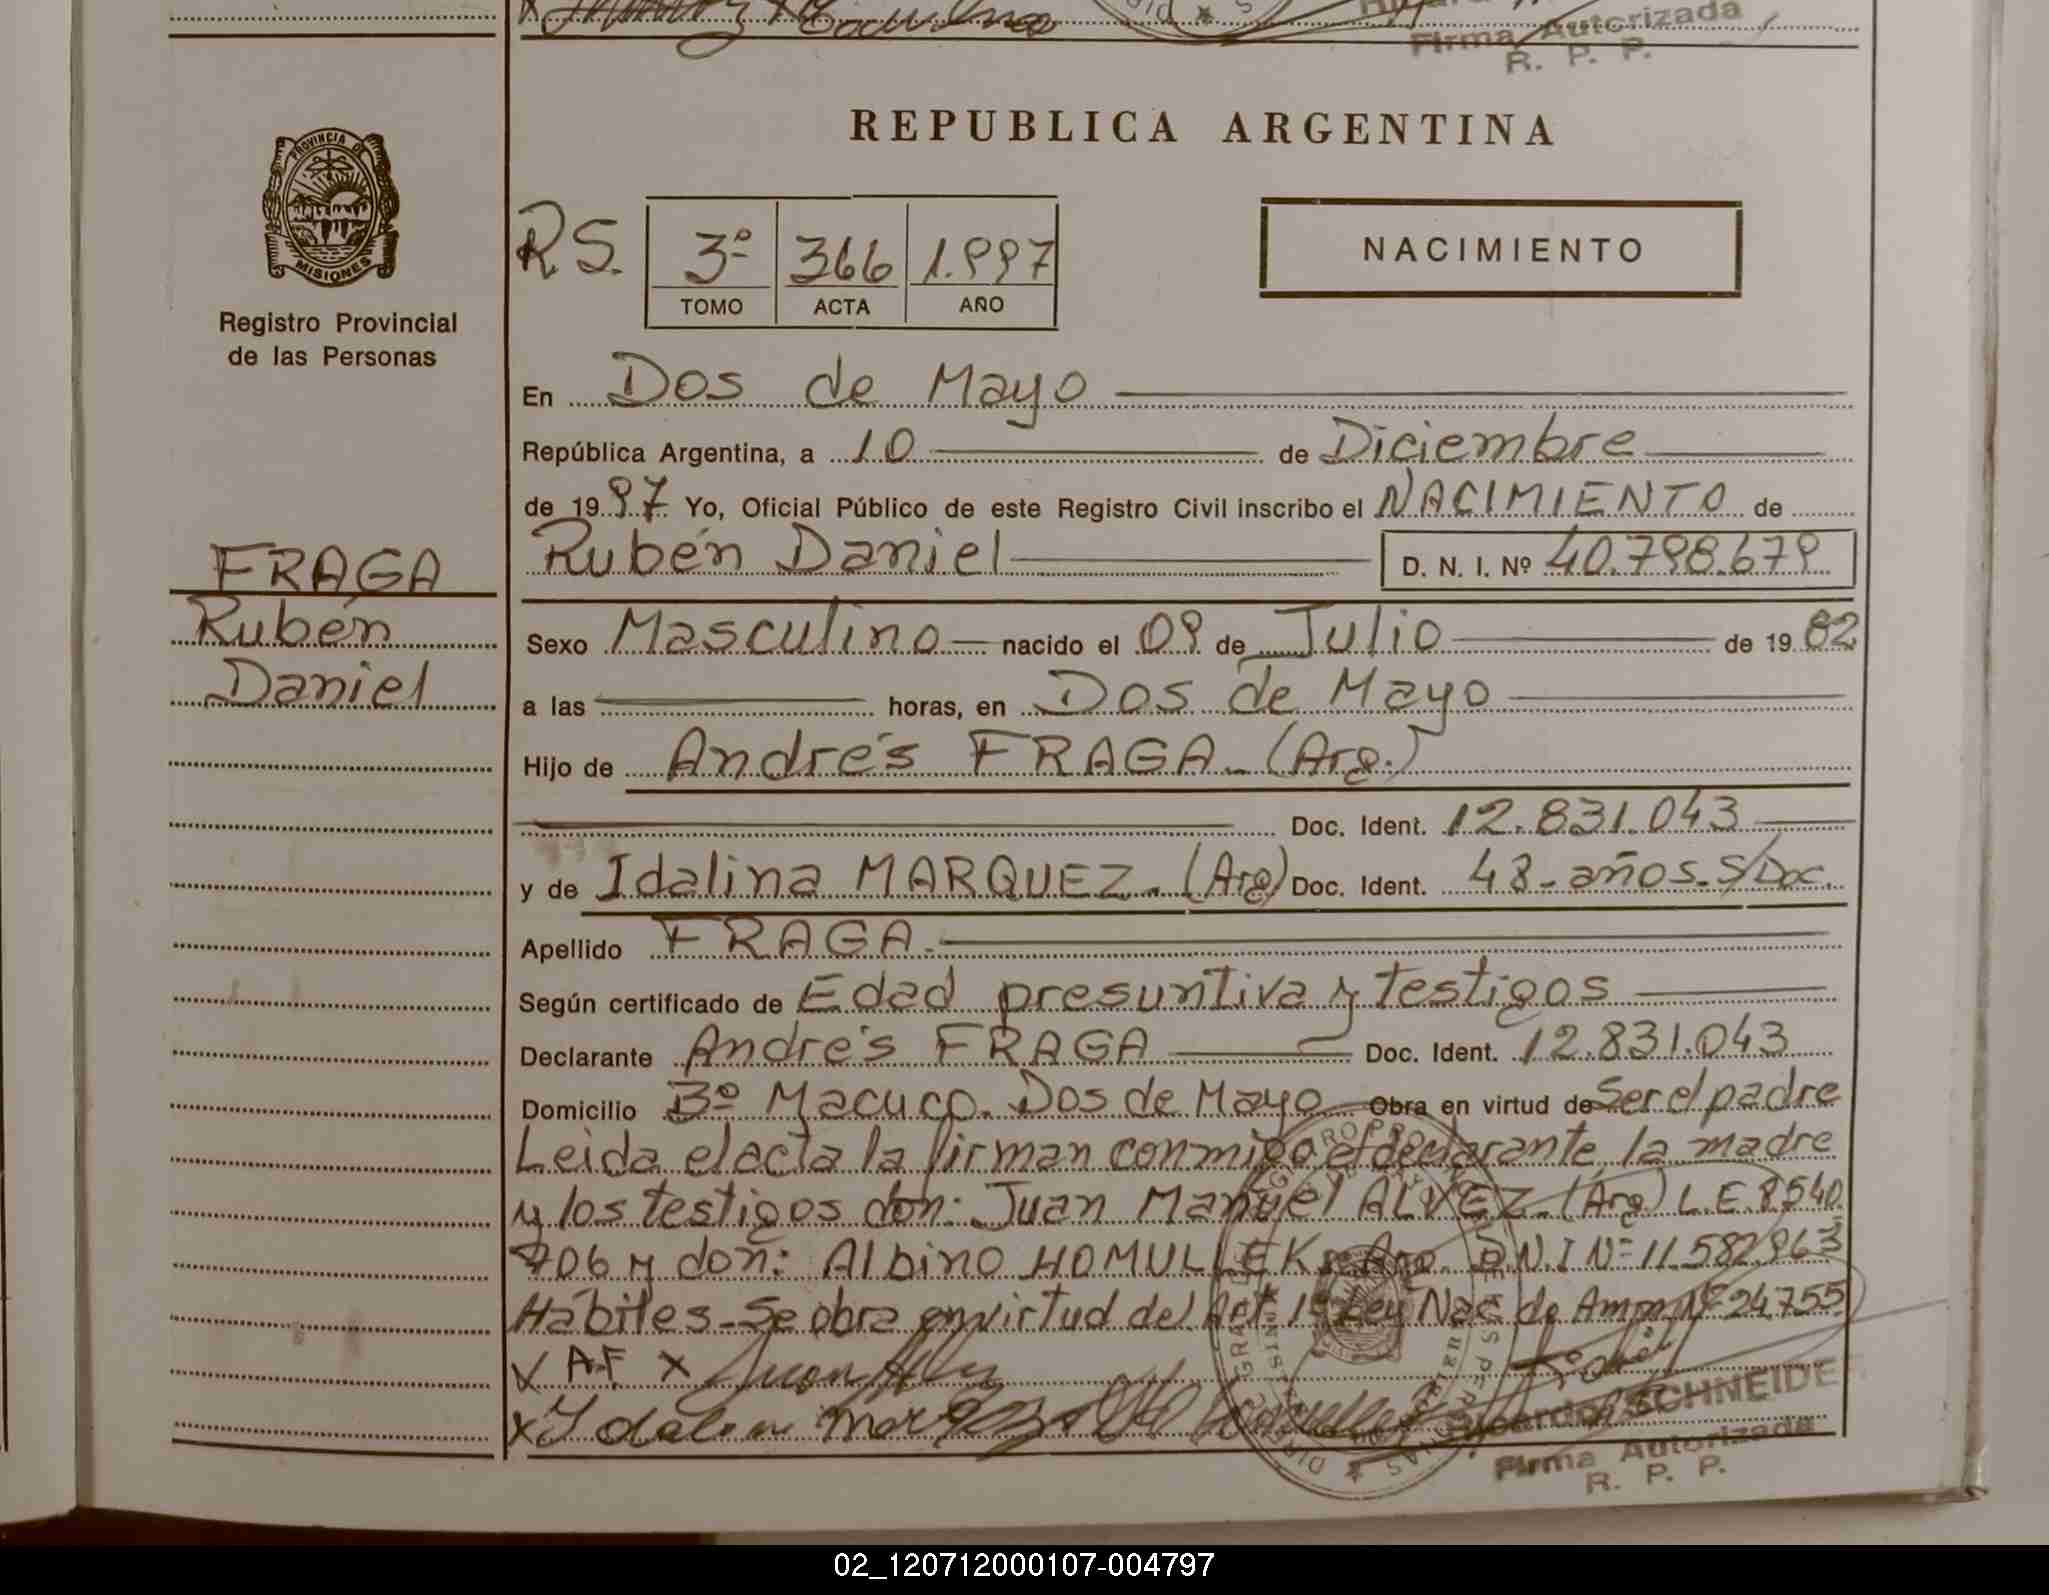 Firma Autorizada
R. P. P.
REPUBLICA ARGENTINA
PROVINCIA DE
MISIONES
Registro Provincial
de las Personas
R.S.
3º 366 1.997
TOMO ACTA AÑO
NACIMIENTO
En Dos de Mayo
República Argentina, a 10 de Diciembre
de 1997 Yo, Oficial Público de este Registro Civil inscribo el NACIMIENTO de
Rubén Daniel D. N. I. Nº 40.798.679
FRAGA
Rubén
Daniel
Sexo Masculino nacido el 09 de Julio de 1982
a las horas, en Dos de Mayo
Hijo de Andrés FRAGA - (Arg.)
Doc. Ident. 12.831.043
y de Idalina MARQUEZ. (Arg) Doc. Ident. 48 - años - S/Doc.
Apellido FRAGA.
Según certificado de Edad presuntiva y testigos
Declarante Andrés FRAGA Doc. Ident. 12.831.043
Domicilio Bº Macuco. Dos de Mayo Obra en virtud de Ser el padre
Leida el acta la firman conmigo el declarante, la madre
y los testigos don: Juan Manuel ALVEZ. (Arg) L.E. 8540.
706 y don: Albino HOMULLEK. Arg. D.N.I Nº 11.582.963
Hábiles - Se obra en virtud del Art. 1º Ley Nac. de Amn. Nº 24.755
x A.F. x Juan
x Ydalin
Ricardo SCHNEIDER
Firma Autorizada
R. P. P.
02_120712000107-004797